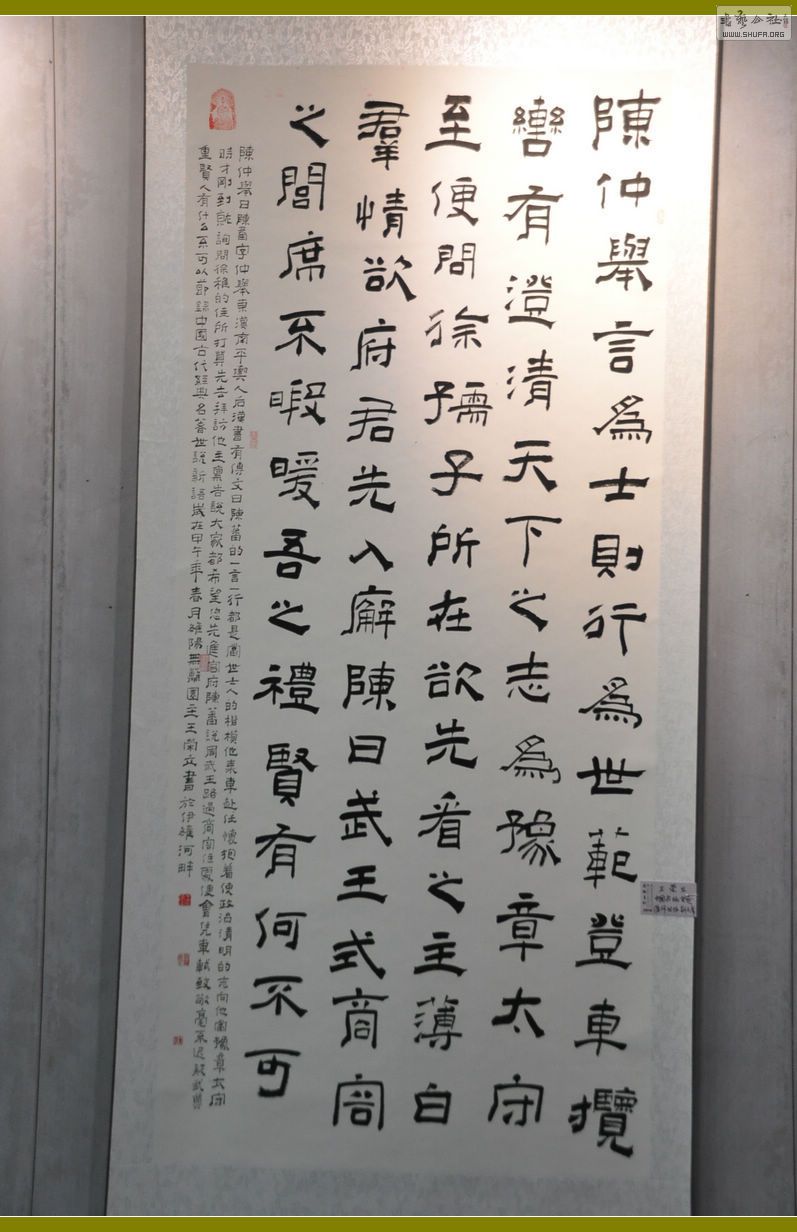 陳仲舉言爲士則行爲世範登車攬
轡有澄清天下之志爲豫章太守
至便問徐孺子所在欲先看之主薄白
羣情欲府君先入廨陳曰武王式商容
之閭席不暇暖吾之禮賢有何不可
陳仲舉曰陳蕃字仲舉東漢南平輿人后漢書有傳文曰陳蕃的一言一行都是當世士人的楷模他乘車赴任懷抱着使政治清明的志向他當豫章太守
時才剛到就詢問徐稚的住所打算先去拜訪他主簿告說大家都希望您先進官府陳蕃說周武王路過商容住處便會凭車軾致敬毫不遲
重賢人有什么不可以節錄中國古代經典名著世說新語歲在甲午年春月雒陽無園主王榮立書於伊雒河畔
書藝公社
WWW.SHUFA.ORG